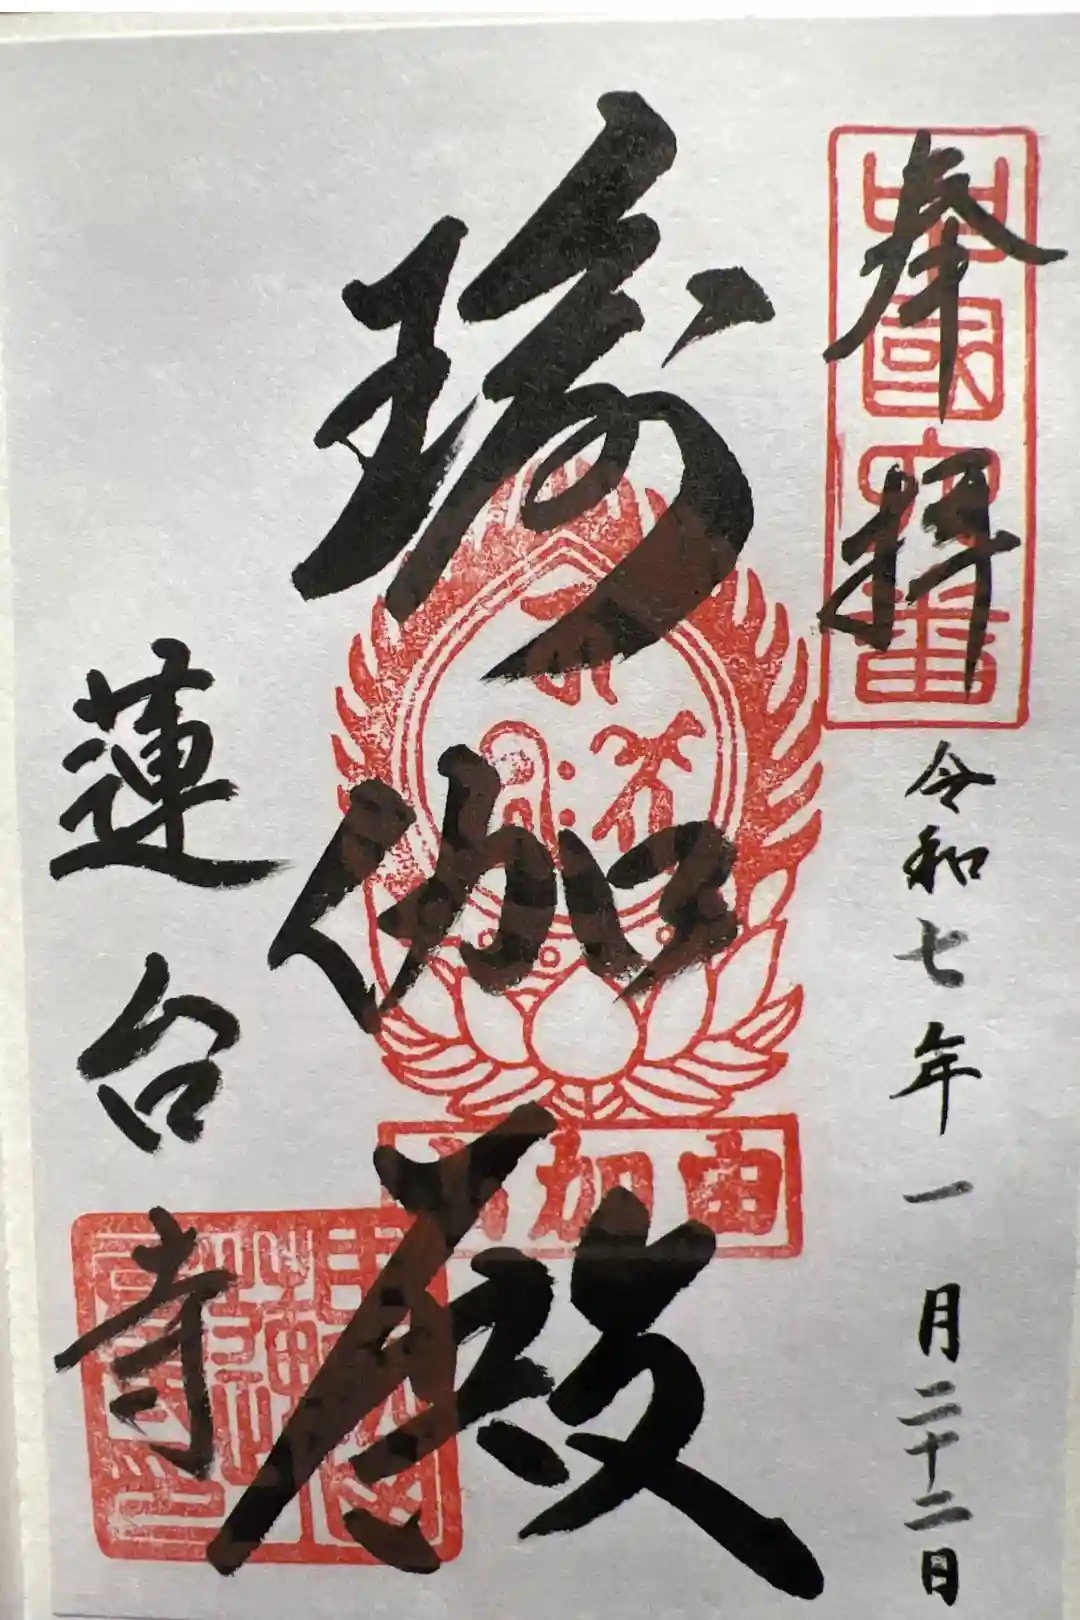 奉拝
中国六番
令和七年一月二十二日
瑜伽殿
由加山
蓮台寺